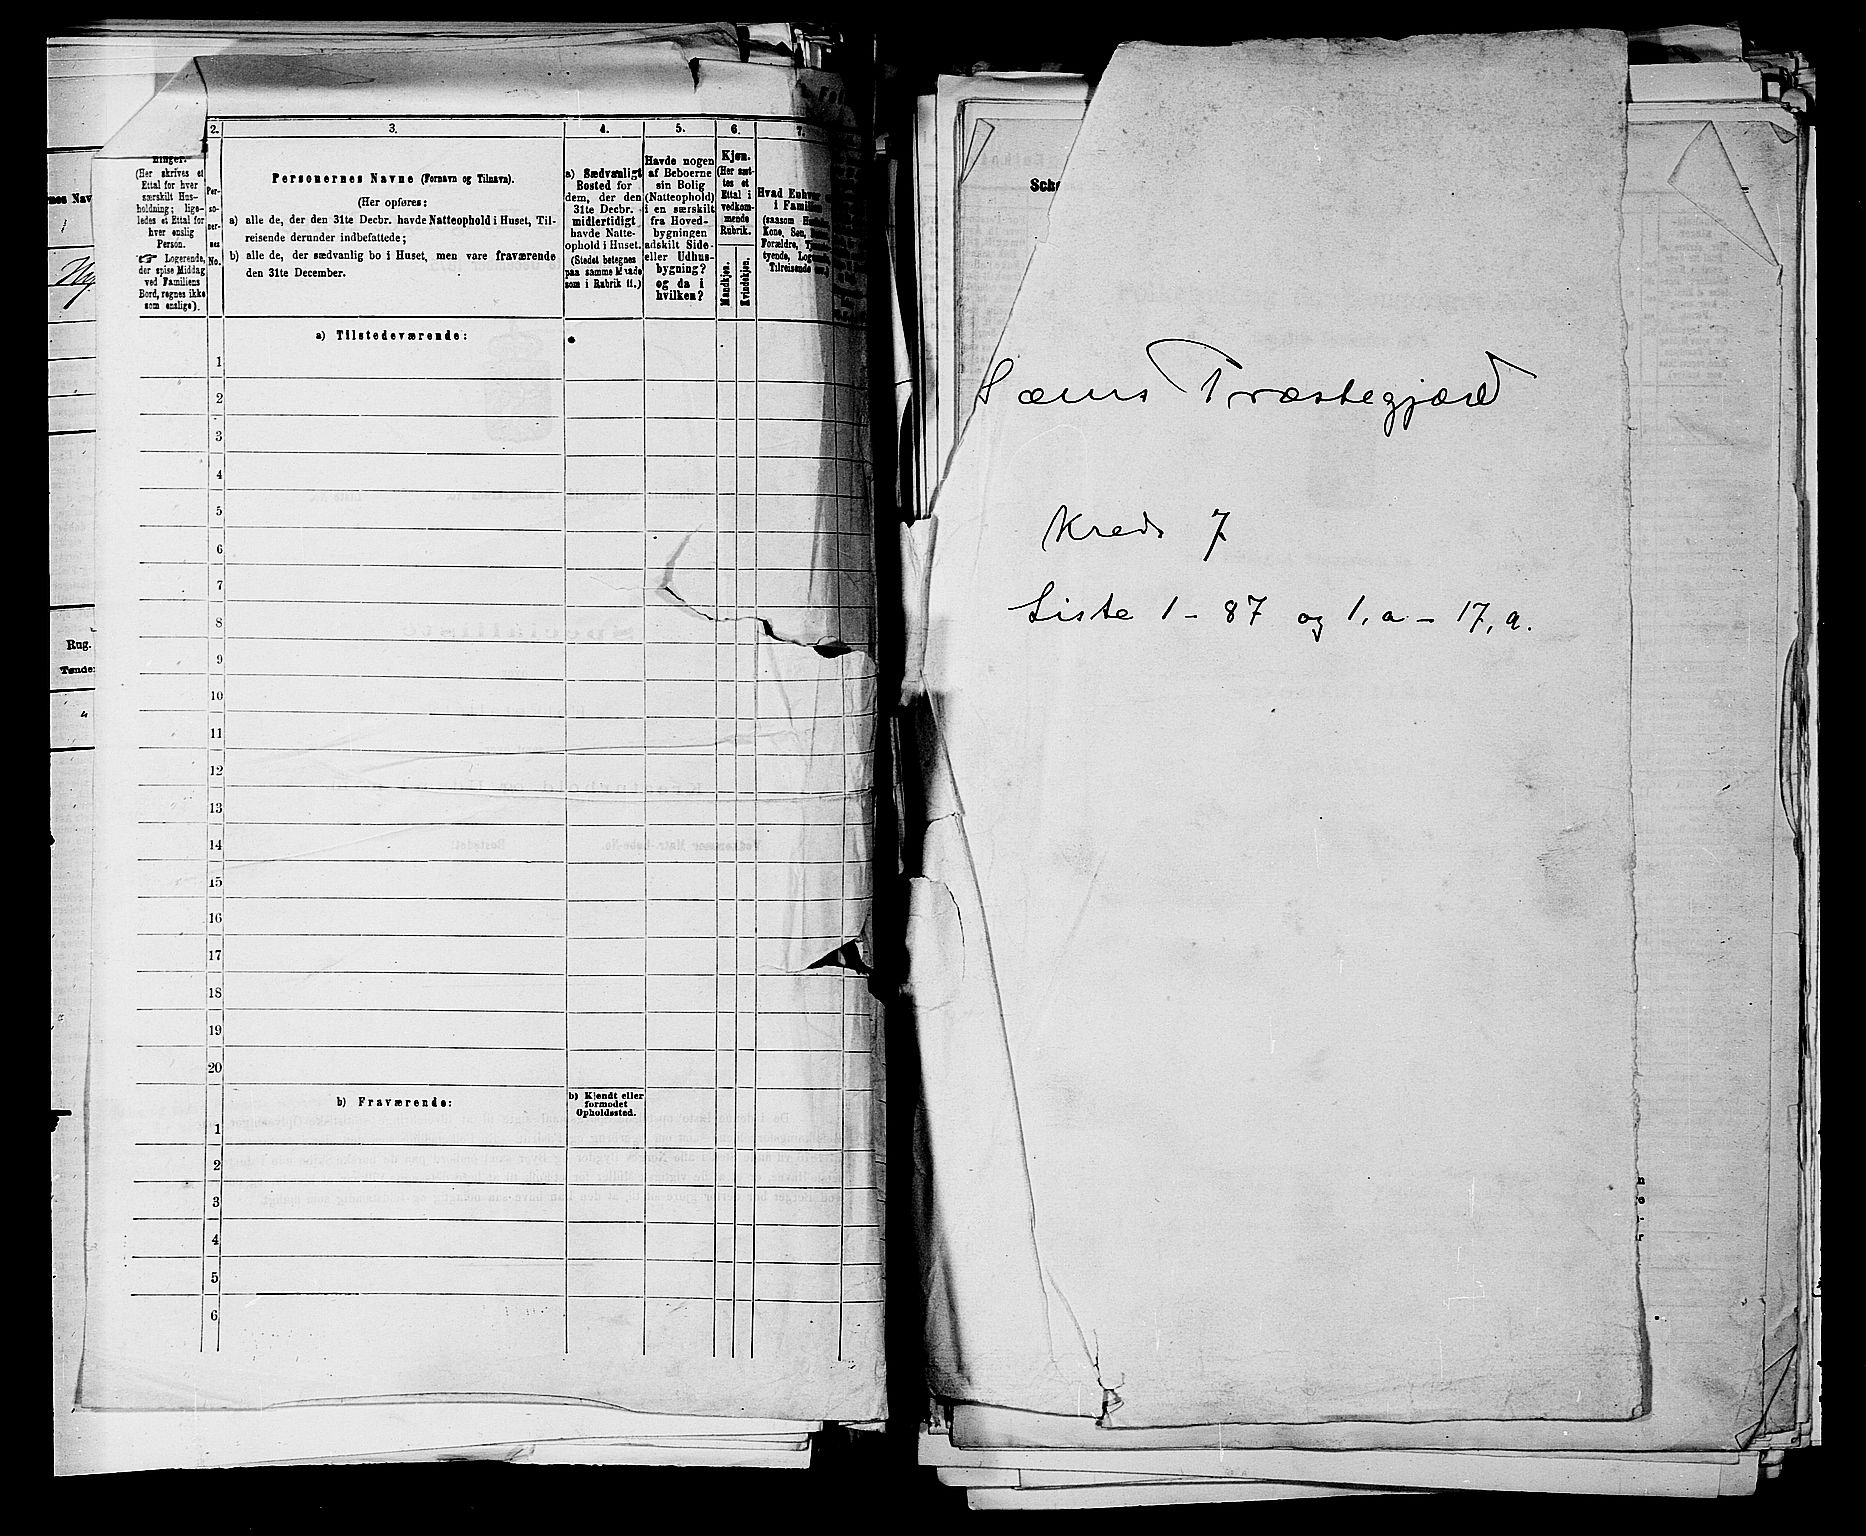 nes Nav
Rug.
Tønde
2.
3.
4.
5.
6.
7.
(Her skrives et
Ettal for hver
særskilt Hus-
holdning; lige-
ledes et Ettal for
hver enslig
Person.
☞ Logerende,
der spise Middag
ved Familiens
Bord, regnes ikke
som enslige).
Per-
so-
ner-
nes
No.
Personernes Navne (Fornavn og Tilnavn).
(Her opføres:
a) alle de, der den 31te Decbr. havde Natteophold i Huset, Til-
reisende derunder indbefattede;
b) alle de, der sædvanlig bo i Huset, men vare fraværende
den 31te December.
a) Sædvanligt
Bosted for
dem, der den
31te Decbr.
midlertidigt
havde Natte-
ophold i Huset.
(Stedet betegnes
paa samme Maade
som i Rubrik 11.)
Havde nogen
af Beboerne
sin Bolig
(Natteophold)
i en særskilt
fra Hoved-
bygningen
adskilt Side-
eller Udhus-
bygning?
og da i
hvilken?
Kjøn.
(Her sæt-
tes et
Ettal i
vedkom-
mende
Rubrik.
Mandkjøn.
Kvindekjøn.
Hvad Enhver
i Familien
(saasom Hus
Kone, Søn,
Forældre, Tj
tyende, Log
Tilreisende
a) Tilstedeværende:
1
2
3
4
5
6
7
8
9
10
11
12
13
14
15
16
17
18
19
20
b) Fraværende:
b) Kjendt eller
formodet
Opholdssted.
1
2
3
4
5
6
Sche
Sæms Præstegjæld
Kreds 7
Liste 1 - 87 og 1, a - 17, a.
n
e
-
r